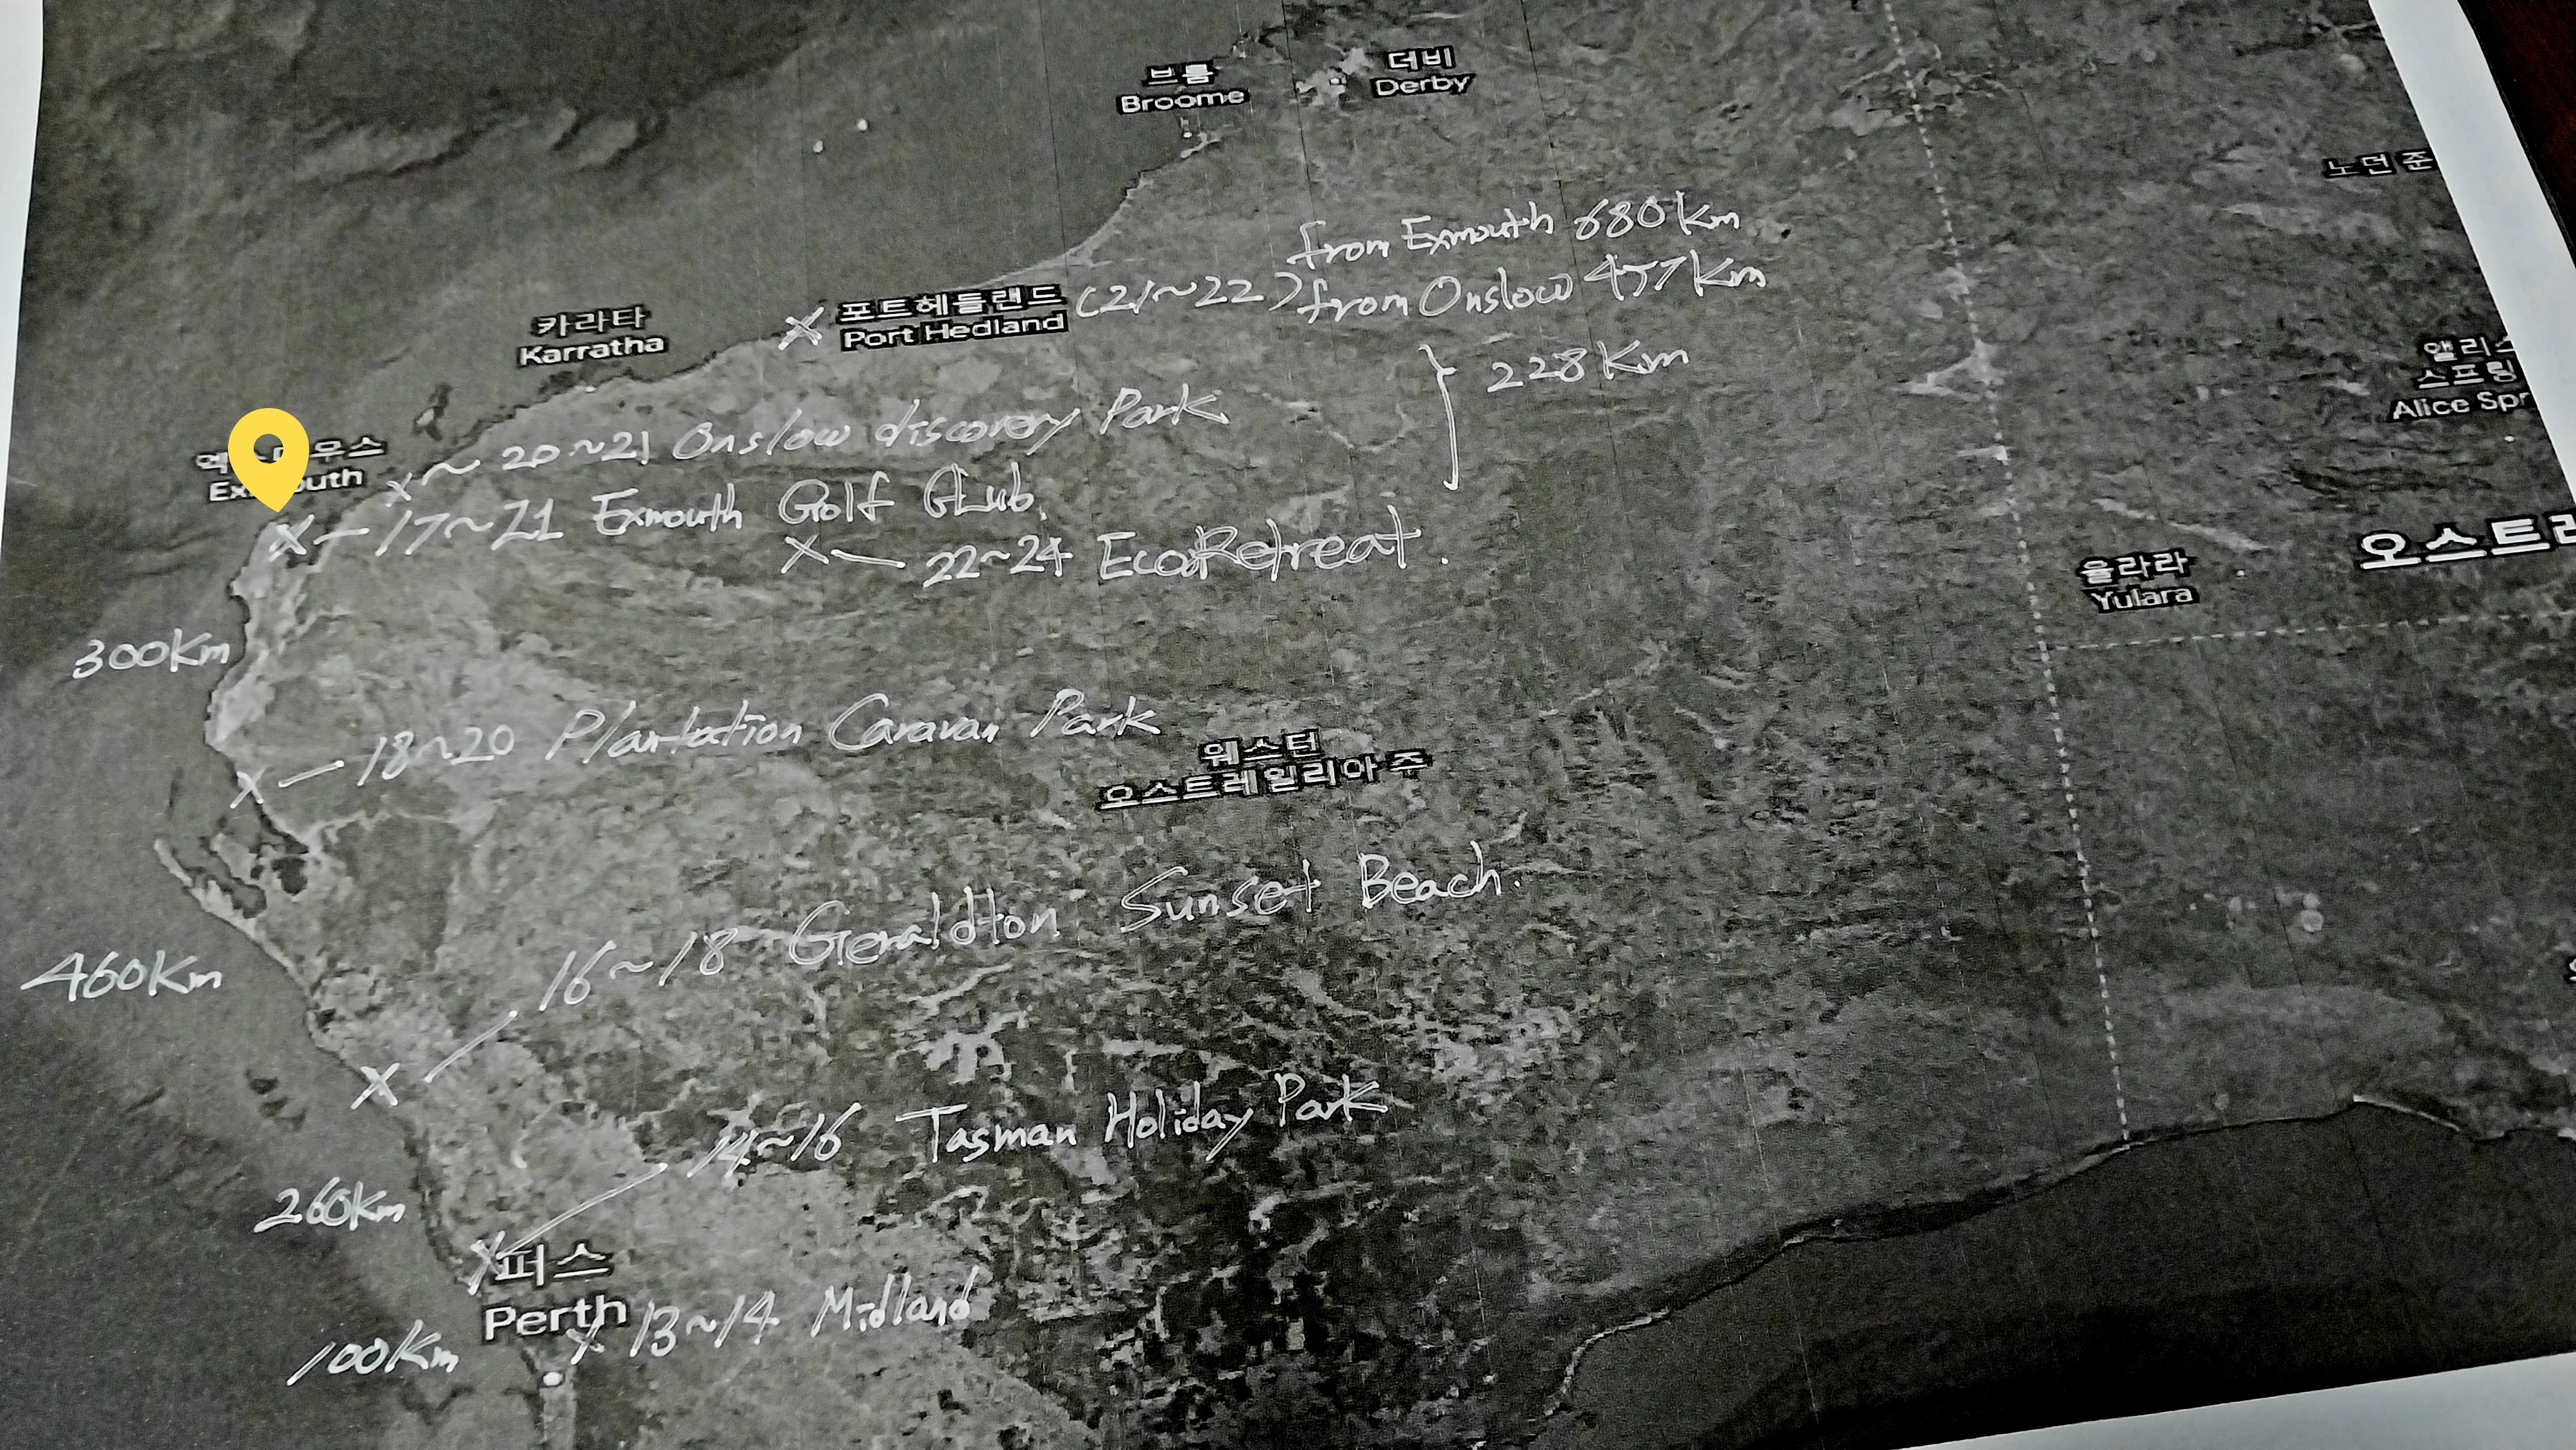 브룸
Broome
더비
Derby
노던 준
from Exmouth 680Km
포트헤들랜드 (21~22) from Onslow 457Km
Port Hedland
카라타
Karratha
228Km
앨리스
스프링
Alice Spr
20~21 Onslow discovery Park
우스
outh
17~21 Exmouth Golf Club.
22~24 EcoRetreat.
오스트레
율라라
Yulara
300Km
18~20 Plantation Caravan Park
웨스턴
오스트레일리아 주
16~18 Geraldton Sunset Beach.
460Km
14~16 Tasman Holiday Park
260Km
퍼스
Perth
13~14 Midland
100Km